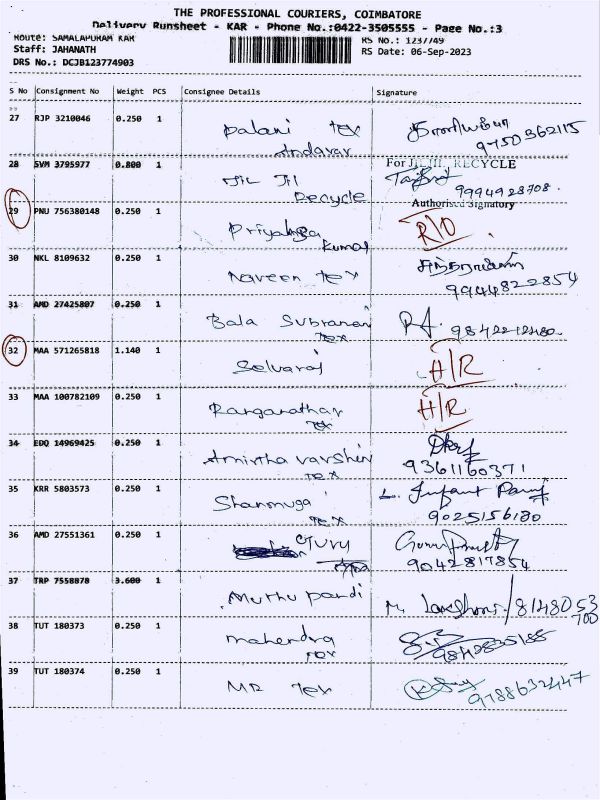 THE PROFESSIONAL COURIERS, COIMBATORE
Delivery Runsheet - KAR - Phone No.:0422-3505555 - Page No.:3
Route: SAMALAPURAM KAR
RS No.: 1237749
Staff: JAHANATH
RS Date: 06-Sep-2023
DRS No.: DCJB123774903
S No Consignment No Weight PCS Consignee Details Signature
27 RJP 3210046 0.250 1 Palani Tex
Andavar
9750362115
28 SVM 3795977 0.800 1 JIL JIL For JIL JIL RECYCLE
Recycle 9994928708.
Authorised Signatory
29 PNU 756380148 0.250 1 Priyanga R/O
Kumar
30 NKL 8109632 0.250 1 Naveen Tex
9944822854
31 AMD 27425807 0.250 1 Bala Subramani 9842212480.
Tex
32 MAA 571265818 1.140 1 Selvaraj H/R
33 MAA 100782109 0.250 1 Ranganathar H/R
Tex
34 EDQ 14969425 0.250 1 Amirtha varshini
Tex 9361160371
35 KRR 5803573 0.250 1 Shanmuga
Tex 9025156180
36 AMD 27551361 0.250 1 Guru
9042817854
37 TRP 7558878 3.600 1 Muthu pandi 8148053
700
38 TUT 180373 0.250 1 mahendra
Tex 9842835185
39 TUT 180374 0.250 1 MR Tex
9788632447